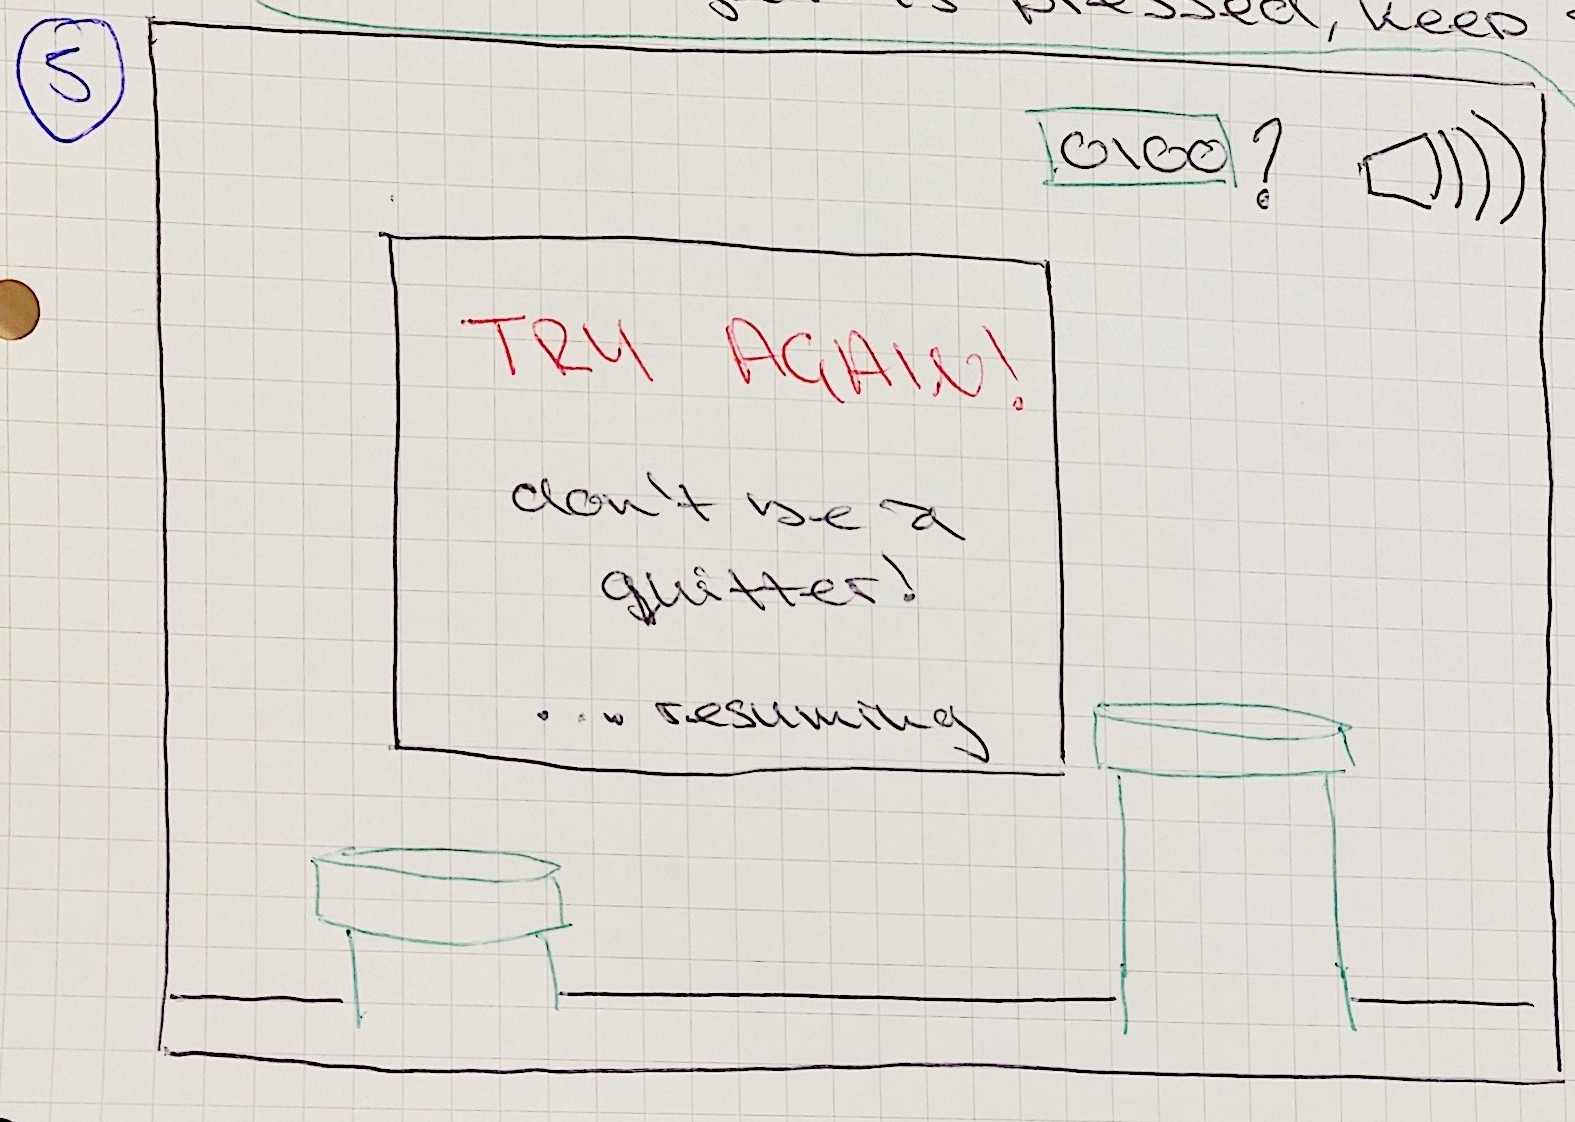 is pressed, keep
5
0100?
TRY AGAIN!
don't be a
quitter!
... resuming